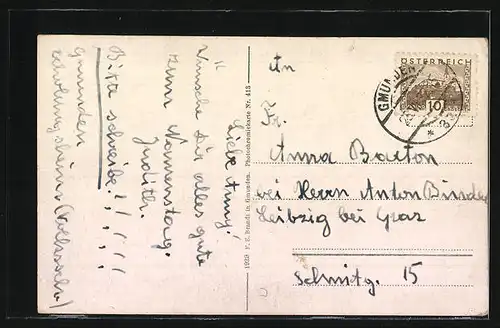 Liebe Anny!
Wünsche Dir alles gute
zum Namenstag.
Judith.
Bitte schreibe!!!!!
Gmunden
1929 P. E. Brandt in Gmunden. Photochromiekarte Nr. 415
ÖSTERREICH
10
GMUNDEN
An
Fr.
Anna Barton
bei Herrn Anton Binder
Leibzig bei Graz
15